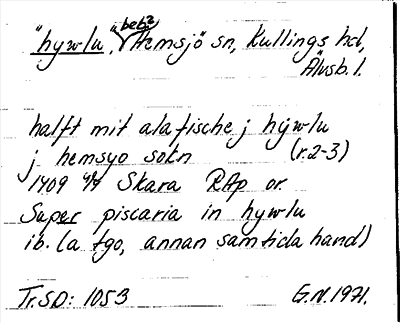 "hywlu", beb? Hemsjö sn, Kullings hd,
Älvsb. l.
halft mit alafische j hywlu
j hemsyo sokn (r. 2-3)
1409 4/9 Skara RAp or.
Super piscaria in hywlu
ib. (a tgo, annan samtida hand)
Tr. SD: 1053 G.N. 1971.